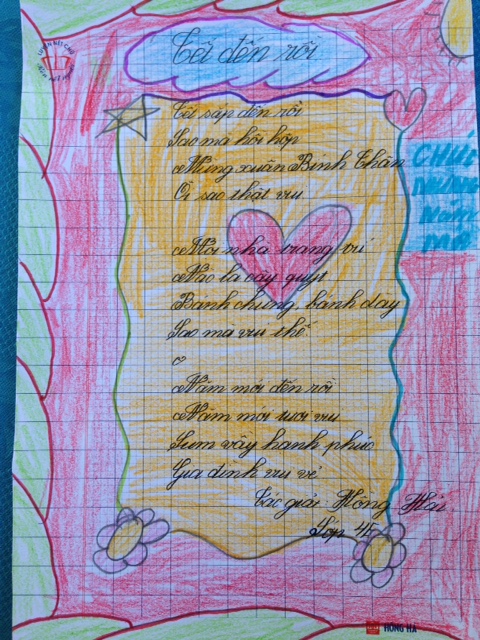 Tết đến rồi
Tết sắp đến rồi
Sao mà hồi hộp
Mừng xuân Bính Thân
Ôi sao thật vui
Mỗi nhà trang trí
Nào là cây quýt
Bánh chưng, bánh dày
Sao mà vui thế.
Năm mới đến rồi
Năm mới tươi vui
Sum vầy hạnh phúc
Gia đình vui vẻ
Tác giả: Hồng Hải
Lớp 4E
CHÚC
MỪNG
NĂM
MỚ
HỒNG HÀ